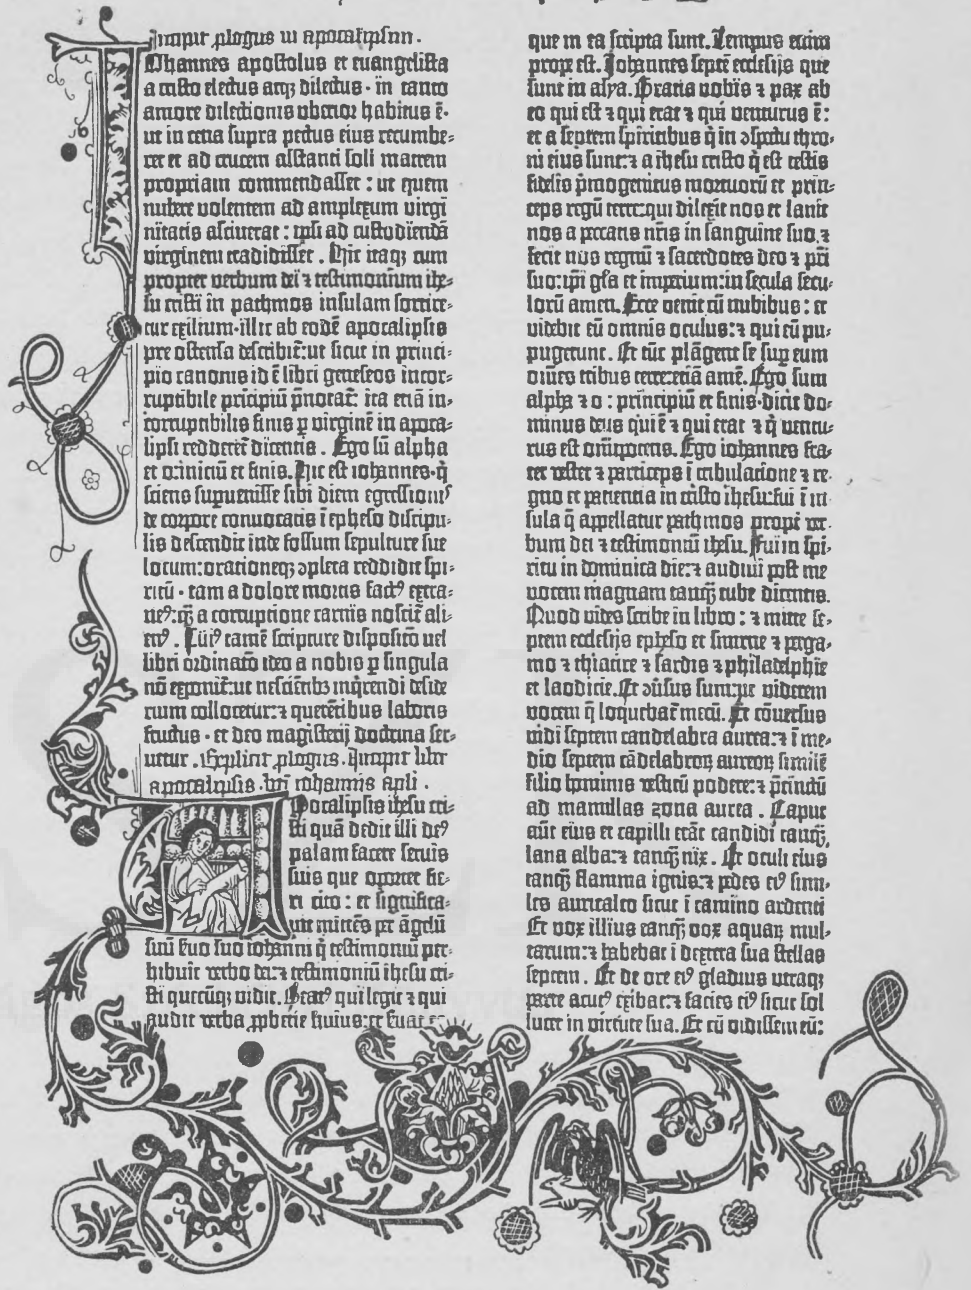 Incipit ꝓlogus in apocalipsim .
Iohannes apostolus et euangelista
a cristo electus atqꝫ dilectus · in tanto
amore dilectionis uberior habitus ē·
ut in cena supra pectus eius recumbe-
ret et ad crucem astanti soli matrem
propriam commendasset : ut quem
nubere volentem ad amplexum virgi
nitatis asciuerat : ipsi ad custodiendā
virginem tradidisset . Hic itaqꝫ cum
propter verbum dei ⁊ testimonium ihe-
su cristi in pathmos insulam sortire-
tur exilium·illic ab eodē apocalipsis
pre ostensa describit̄:ut sicut in princi-
pio canonis id ē libri geneseos incor-
ruptibile prīcipiū p̄notat̄: ita etiā in-
corruptibilis finis ꝑ virginē in apoca-
lipsi redderet̄ dicentis . Ego sū alpha
et o:iniciū et finis. Hic est iohannes·q̄
sciens supuenisse sibi diem egressionis
de corpore conuocatis ī epheso discipu-
lis descendit inde fossum sepulture sue
locum:orationeqꝫ ↄpleta reddidit spi-
ritū · tam a dolore mortis factꝰ extra-
neꝰ:qꝫ a corruptione carnis noscit̄ ali-
enꝰ . Cuiꝰ tamē scripture dispositō vel
libri ordinatō ideo a nobis ꝑ singula
nō exponit̄:ut nesciētibꝫ inq̄rendi deside
rium collocetur:⁊ querētibus laboris
fructus · et deo magisterij doctrina ser-
uetur . Explicit ꝓlogus . Incipit liber
apocalipsis . bti iohannis apli .
Apocalipsis ihesu cri-
sti quā dedit illi deꝰ
palam facere seruis
suis que oportet fie-
ri cito : et significa-
uit mittēs per āgelū
suū suo suo iohanni q̄ testimoniū per-
hibuit verbo dei:⁊ testimoniū ihesu cri-
sti quecūqꝫ vidit. Beatꝰ qui legit ⁊ qui
audit verba ꝓphetie huius:et suat
que in ea scripta sunt. Tempus enim
prope est. Johannes septē ecclesijs que
sunt in asya. Gratia vobis ⁊ pax ab
eo qui est ⁊ qui erat ⁊ qui venturus ē:
et a septem spiritibus q̄ in ↄspectu thro-
ni eius sunt:⁊ a ihesu cristo q̄ est testis
fidelis p̄mogenitus mortuorū et prin-
ceps regū terre:qui dilexit nos et lauit
nos a peccatis nr̄is in sanguine suo.⁊
fecit nos regnū ⁊ sacerdotes deo ⁊ pr̄i
suo:ip̄i gl̄a et imperium:in secula secu-
lorū amen. Ecce venit cū nubibus : et
videbit eū omnis oculus:⁊ qui eū pu-
pugerunt . Et tūc plāgent se sup eum
om̄es tribus terre:etiā amē. Ego sum
alpha ⁊ o : principiū et finis·dicit do-
minus deus qui ē ⁊ qui erat ⁊ q̄ ventu-
rus est om̄ipotens. Ego iohannes fra-
ter vester ⁊ particeps ī tribulacione ⁊ re-
gno et patientia in cristo ihesu:fui ī in
sula q̄ appellatur pathmos propter ver
bum dei ⁊ testimoniū ihesu. Fui in spi-
ritu in dominica die:⁊ audiui post me
vocem magnam tanqꝫ tube dicentis.
Quod vides scribe in libro : ⁊ mitte se-
ptem ecclesijs epheso et smirne ⁊ perga-
mo ⁊ thiatire ⁊ sardis ⁊ philadelphie
et laodicie. Et ↄūsus sum:ut viderem
vocem q̄ loquebat̄ mecū. Et cōuersus
vidi septem candelabra aurea:⁊ ī me-
dio septem cādelabroꝝ aureoꝝ similē
filio hominis vestitū podere:⁊ p̄cinctū
ad mamillas zona aurea . Caput
aūt eius et capilli erāt candidi tanqꝫ
lana alba:⁊ tanqꝫ nix . Et oculi eius
tanqꝫ flamma ignis:⁊ pedes eiꝰ simi-
les auricalco sicut ī camino ardenti
Et vox illius tanqꝫ vox aquaꝝ mul-
tarum:⁊ habebat ī dextera sua stellas
septem . Et de ore eiꝰ gladius utraqꝫ
parte acutꝰ exibat:⁊ facies eiꝰ sicut sol
lucet in virtute sua. Et cū vidissem eū: